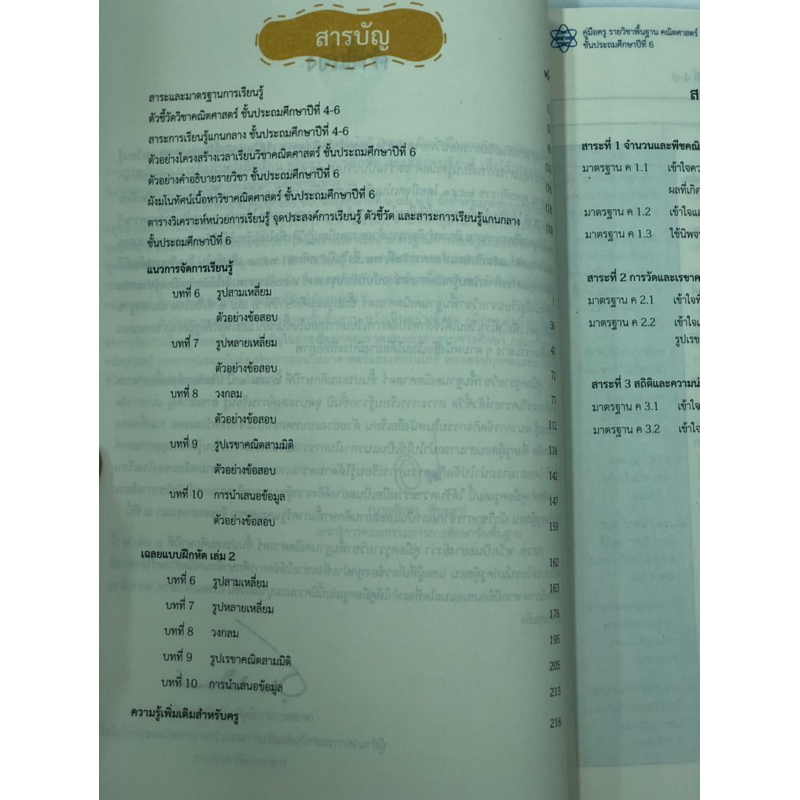 สารบัญ
สาระและมาตรฐานการเรียนรู้
ตัวชี้วัดวิชาคณิตศาสตร์ ชั้นประถมศึกษาปีที่ 4-6
สาระการเรียนรู้แกนกลาง ชั้นประถมศึกษาปีที่ 4-6
ตัวอย่างโครงสร้างเวลาเรียนวิชาคณิตศาสตร์ ชั้นประถมศึกษาปีที่ 6
ตัวอย่างคำอธิบายรายวิชา ชั้นประถมศึกษาปีที่ 6
ผังมโนทัศน์เนื้อหาวิชาคณิตศาสตร์ ชั้นประถมศึกษาปีที่ 6
ตารางวิเคราะห์หน่วยการเรียนรู้ จุดประสงค์การเรียนรู้ ตัวชี้วัด และสาระการเรียนรู้แกนกลาง
ชั้นประถมศึกษาปีที่ 6
แนวการจัดการเรียนรู้
บทที่ 6 รูปสามเหลี่ยม 1
ตัวอย่างข้อสอบ 36
บทที่ 7 รูปหลายเหลี่ยม 42
ตัวอย่างข้อสอบ 72
บทที่ 8 วงกลม 77
ตัวอย่างข้อสอบ 112
บทที่ 9 รูปเรขาคณิตสามมิติ 116
ตัวอย่างข้อสอบ 142
บทที่ 10 การนำเสนอข้อมูล 147
ตัวอย่างข้อสอบ 159
เฉลยแบบฝึกหัด เล่ม 2 162
บทที่ 6 รูปสามเหลี่ยม 163
บทที่ 7 รูปหลายเหลี่ยม 178
บทที่ 8 วงกลม 195
บทที่ 9 รูปเรขาคณิตสามมิติ 205
บทที่ 10 การนำเสนอข้อมูล 213
ความรู้เพิ่มเติมสำหรับครู 218
คู่มือครู รายวิชาพื้นฐาน คณิตศาสตร์
ชั้นประถมศึกษาปีที่ 6
ส
สาระที่ 1 จำนวนและพีชคณิ
มาตรฐาน ค 1.1 เข้าใจคว
ผลที่เกิด
มาตรฐาน ค 1.2 เข้าใจแล
มาตรฐาน ค 1.3 ใช้นิพจ
สาระที่ 2 การวัดและเรขาค
มาตรฐาน ค 2.1 เข้าใจพื้
มาตรฐาน ค 2.2 เข้าใจแ
รูปเรข
สาระที่ 3 สถิติและความน่
มาตรฐาน ค 3.1 เข้าใจ
มาตรฐาน ค 3.2 เข้าใจ